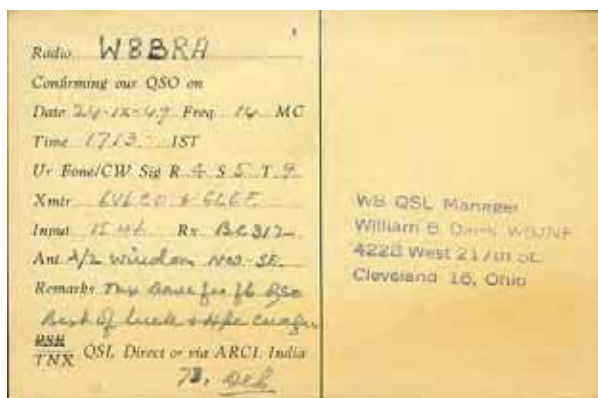 Radio W8BRA
Confirming our QSO on
Date 24-IX-49 Freq. 14 MC
Time 1713 IST
Ur Fone/CW Sig R 4 S 5 T 9
Xmtr 6V6 CO & 6L6
Input 15 Rx BC312
Ant λ/2 Windom
Remarks Tnx Dave for fb QSO
Best of luck & hope cuagn
PSE
TNX QSL Direct or via ARCI, India
73,
W8 QSL Manager
William B Davis W8JNF
4228 West 217th St.
Cleveland 16, Ohio